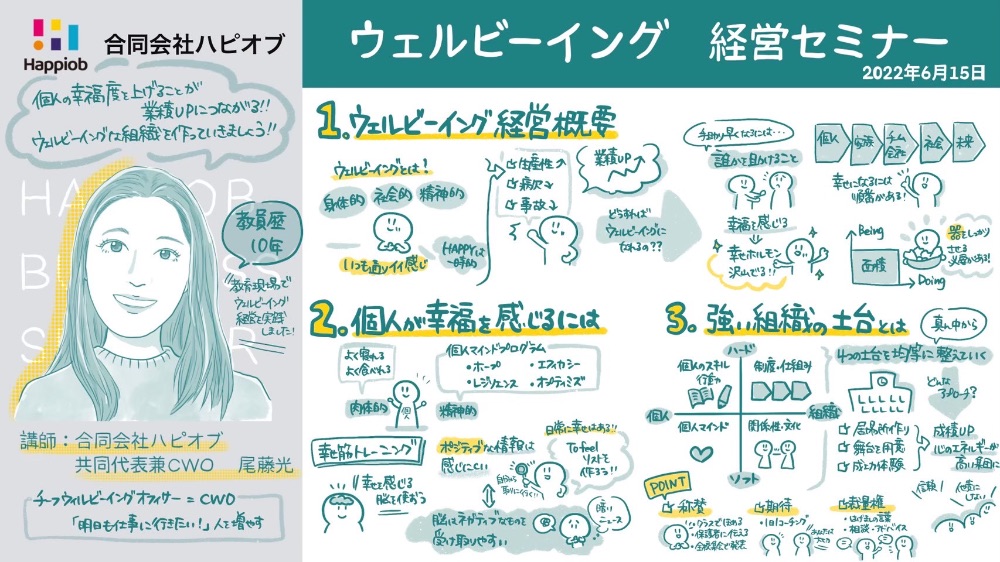 Happiob
合同会社ハピオブ
個人の幸福度を上げることが
業績UPにつながる!!
ウェルビーイングな組織を作っていきましょう!!
教員歴
10年
教育現場で
ウェルビーイング
経営を実践
しました!
講師：合同会社ハピオブ
共同代表兼CWO 尾藤光
チーフウィルビーイングオフィサー = CWO
「明日も仕事に行きたい!」人を増やす
ウェルビーイング 経営セミナー
2022年6月15日
1.ウェルビーイング経営概要
ウェルビーイングとは?
身体的 社会的 精神的
いつも通りイイ感じ
HAPPYは
一時的
生産性↗
病欠↘
事故↘
業績UP
どうすれば
ウェルビーイングに
なれるの??
手っ取り早くなるには…
誰かを助けること
幸福を感じる
幸せホルモン
沢山でる!!
個人
家族
チーム
会社
社会
未来
幸せになるには
順番がある!
Being
面積
Doing
器をしっかり
させる
必要がある!
2.個人が幸福を感じるには
よく寝れる
よく食べれる
個
肉体的
個人マインドプログラム
・ホープ ・エフィカシー
・レジリエンス ・オプティミズム
精神的
幸せ筋トレーニング
幸せを感じる
脳を使おう
ポジティブな情報は
感じにくい
自分から
取りに行く!!
日常に幸せはある!!
To feel
リストを
作ろう!!
脳はネガティブなものを
受け取りやすい
暗い
ニュース
3.強い組織の土台とは
真ん中から
4つの土台を均等に整えていく
ハード
個人のスキル
行動力
制度・仕組み
個人
組織
個人マインド
関係性・文化
ソフト
どんな
アプローチ?
居場所作り
舞台を用意
成功体験
成績UP
心のエネルギーが
高い順に
POINT
称賛
・クラスでほめる
・保護者に伝える
・全校集会で発表
期待
・1日1コーチング
裁量権
・はげましの謎
・相談・アドバイス
信頼!